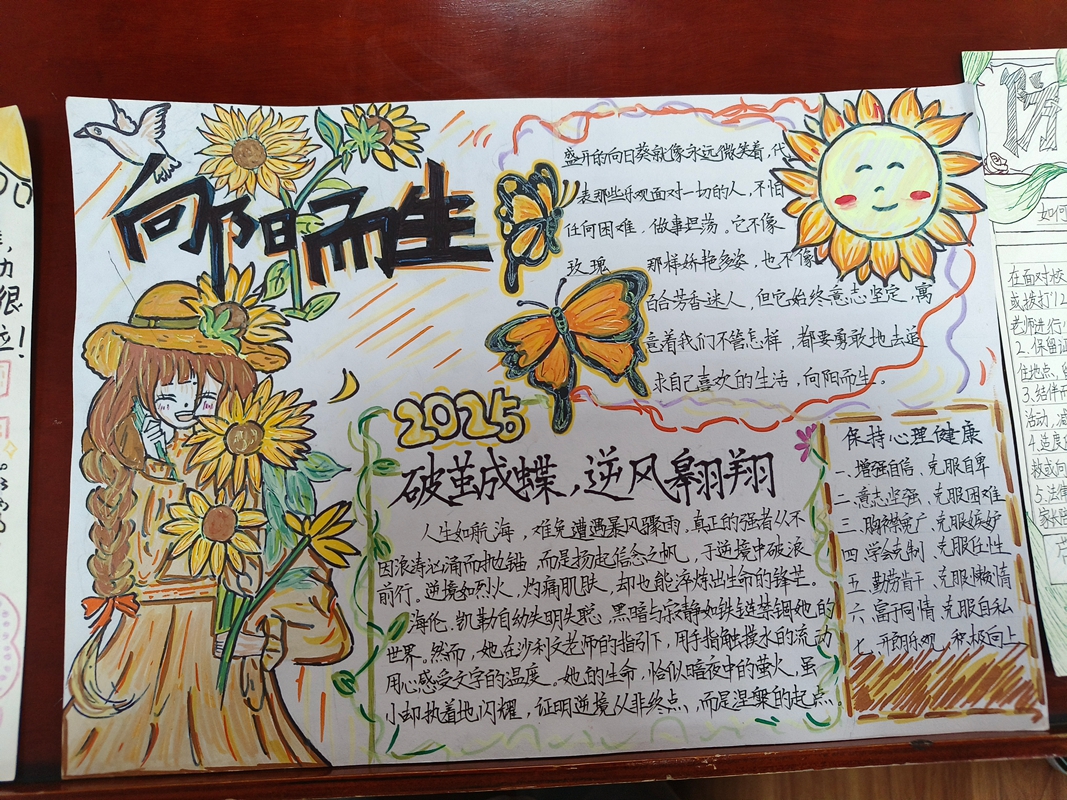 向阳而生
盛开的向日葵就像永远微笑着,代
表那些乐观面对一切的人,不怕
任何困难,做事坦荡。它不像
玫瑰 那样娇艳多姿,也不像
百合芳香迷人,但它始终意志坚定,寓
意着我们不管怎样,都要勇敢地去追
求自己喜欢的生活,向阳而生。
2025
破茧成蝶,逆风翱翔
人生如航海,难免遭遇暴风骤雨,真正的强者从不
因浪涛汹涌而抛锚,而是扬起信念之帆,于逆境中破浪
前行。逆境如烈火,灼痛肌肤,却也能淬炼出生命的锋芒。
海伦.凯勒自幼失明失聪,黑暗与寂静如铁链禁锢她的
世界。然而,她在沙利文老师的指引下,用手指触摸水的流动
用心感受文字的温度。她的生命,恰似暗夜中的萤火,虽
小却执着地闪耀,证明逆境从非终点,而是涅槃的起点.
保持心理健康
一、增强自信、克服自卑
二、意志坚强、克服困难
三、胸襟宽广、克服嫉妒
四、学会克制、克服任性
五、勤劳肯干、克服懒惰
六、富于同情、克服自私
七、开朗乐观、积极向上
如何
在面对校
或拨打"12
老师进行
2.保留证
住地点,
3.结伴
活动,减
4.造良
救或向
5.法律
家长陪
力
很
位!